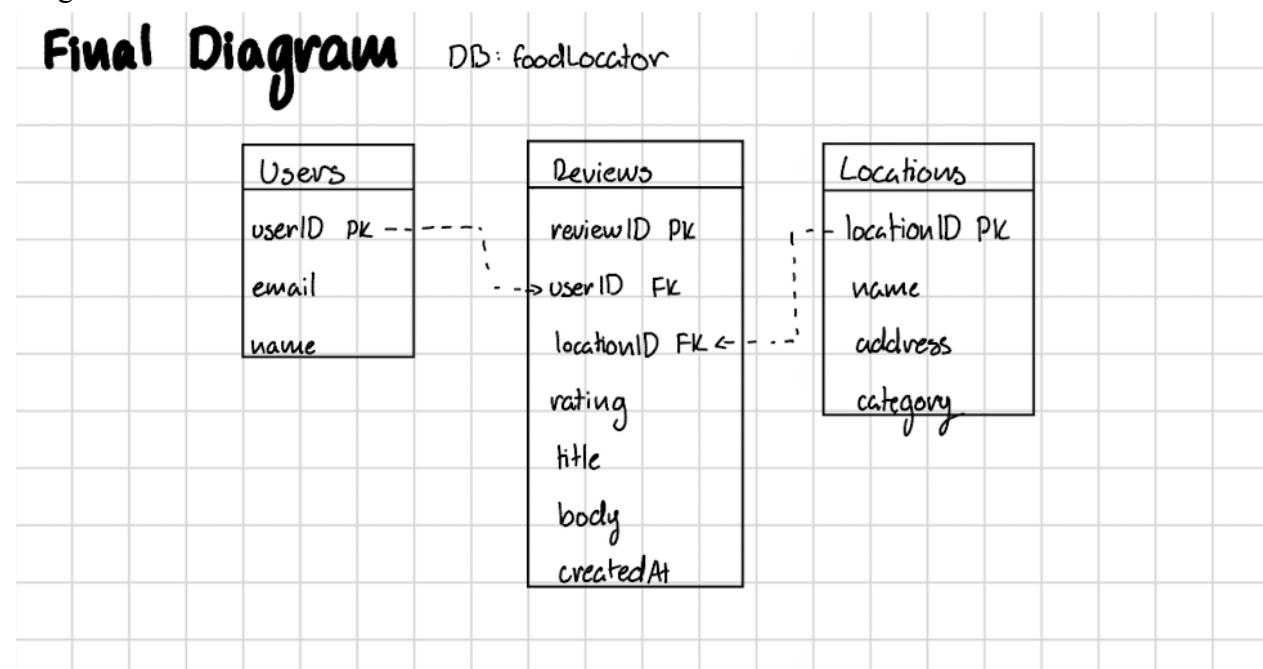 Final Diagram DB: foodLocator
Users
userID PK
email
name
Reviews
reviewID PK
userID FK
locationID FK
rating
title
body
createdAt
Locations
locationID PK
name
address
category